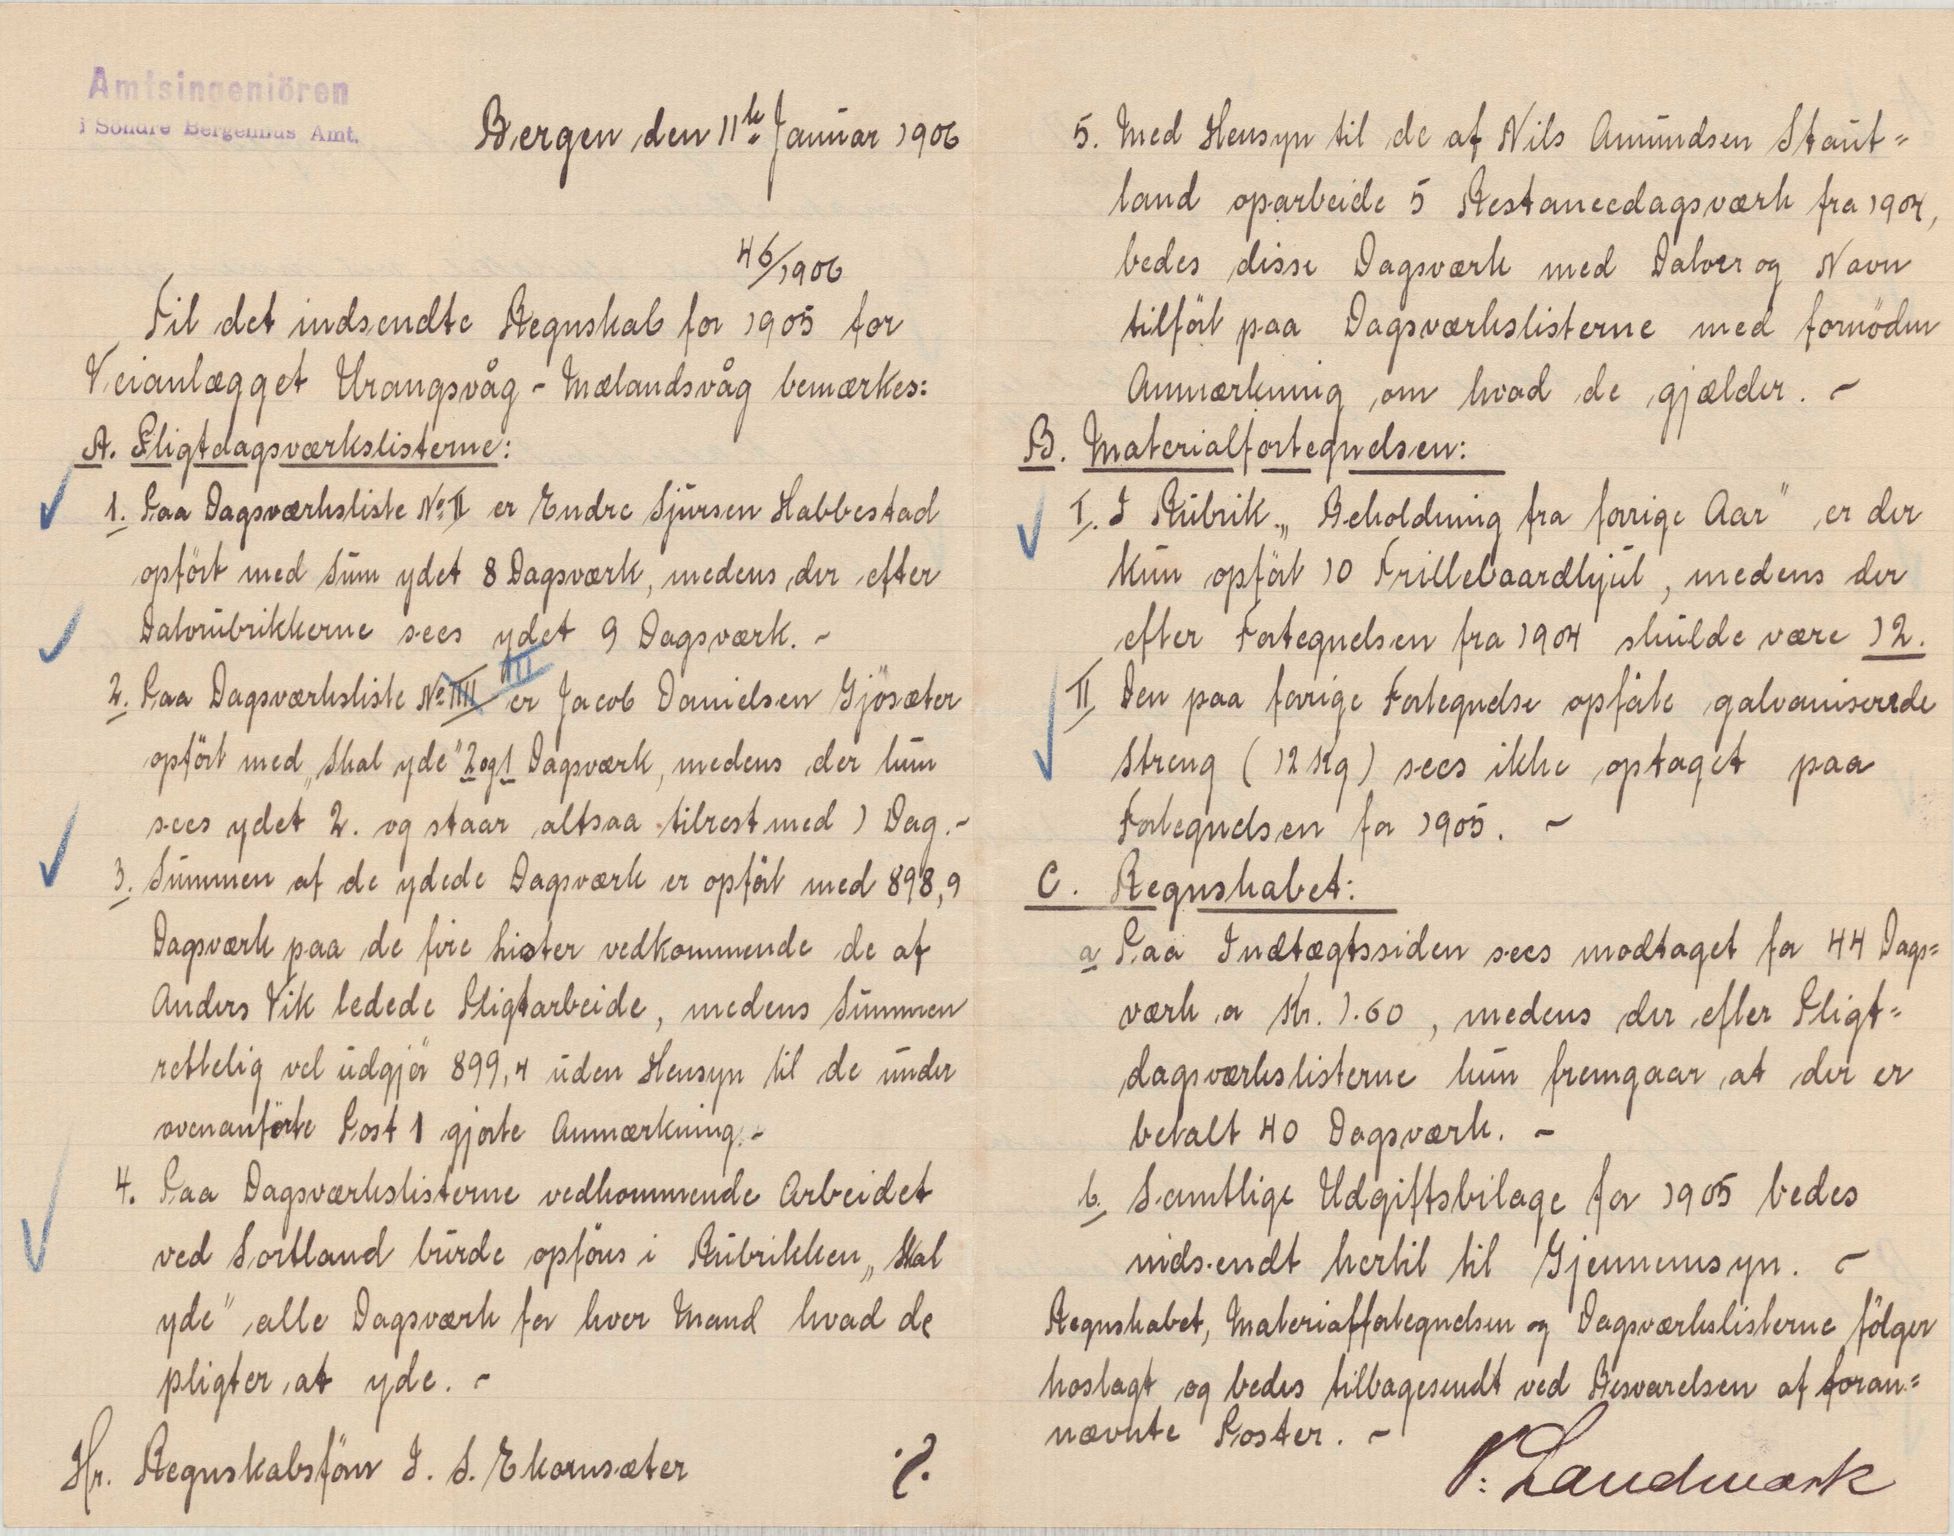 Amtsingeniören
i Söndre Bergenhus Amt.
Bergen den 11te Januar 1906
46/1906
Til det indsendte Regnskab for 1905 for
Veianlægget Urangsvåg - Mælandsvåg bemærkes:
A. Pligtdagsværkslisterne:
1. Paa Dagsværksliste No II er Endre Sjursen Habbestad
opført med Sum ydet 8 Dagsværk, medens der efter
Datorubrikkerne sees ydet 9 Dagsværk. -
III
2. Paa Dagsværksliste No IIII er Jacob Danielsen Gjøsæter
opført med „Skal yde" 2 og 1 Dagsværk, medens der kun
sees ydet 2. og staar altsaa tilrest med 1 Dag. -
3. Summen af de ydede Dagsværk er opført med 898,9
Dagsværk paa de fire Lister vedkommende de af
Anders Vik ledede Pligtarbeide, medens Summen
rettelig vel udgjør 899,4 uden Hensyn til de under
ovenanførte Post 1 gjorte Anmærkning. -
4. Paa Dagsværkslisterne vedkommende Arbeidet
ved Sortland burde opføres i Rubrikken „Skal
yde" alle Dagsværk for hver Mand hvad de
pligter at yde. -
Hr. Regnskabsfører I. S. Ekornsæter
./.
5. Med Hensyn til de af Nils Amundsen Staut=
land oparbeide 5 Restancedagsværk fra 1904,
bedes disse Dagsværk med Datoer og Navn
tilført paa Dagsværkslisterne med fornøden
Anmærkning om hvad de gjælder. -
B. Materialfortegnelsen:
I. I Rubrik „Beholdning fra forrige Aar" er der
kun opført 10 Trillebaardhjul, medens der
efter Fortegnelsen fra 1904 skulde være 12.
II Den paa forrige Fortegnelse opførte galvaniserede
Streng (12 Kg) sees ikke optaget paa
Fortegnelsen for 1905. -
C. Regnskabet:
a Paa Indtægtssiden sees modtaget for 44 Dags=
værk a Kr. 1.60, medens der efter Pligt=
dagsværkslisterne kun fremgaar at der er
betalt 40 Dagsværk. -
b. Samtlige Udgiftsbilage for 1905 bedes
indsendt hertil til Gjennemsyn. -
Regnskabet, Materialfortegnelsen og Dagsværkslisterne følger
hoslagt og bedes tilbagesendt ved Besvarelsen af foran=
nævnte Poster. -
N. Landmark